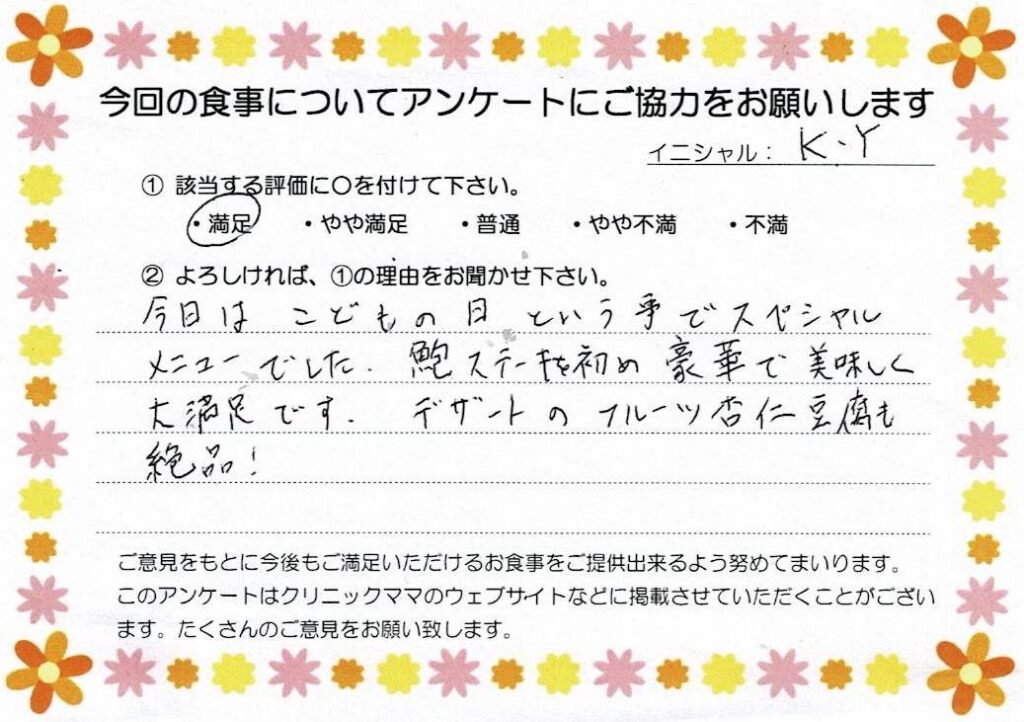 今回の食事についてアンケートにご協力をお願いします
イニシャル： K.Y
① 該当する評価に〇を付けて下さい。
・満足 ・やや満足 ・普通 ・やや不満 ・不満
② よろしければ、①の理由をお聞かせ下さい。
今日は こどもの日 という事でスペシャル
メニューでした. 鮑ステーキを初め豪華で美味しく
大満足です. デザートのフルーツ杏仁豆腐も
絶品!
ご意見をもとに今後もご満足いただけるお食事をご提供出来るよう努めてまいります。
このアンケートはクリニックママのウェブサイトなどに掲載させていただくことがござい
ます。たくさんのご意見をお願い致します。